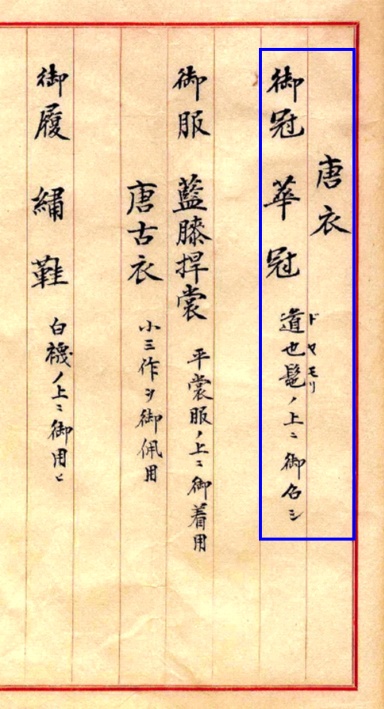 唐衣
御冠 華冠 道也髦ノ上ニ御召シ
ドヤモリ
御服 藍膝捍裳 平裳服ノ上ニ御着用
唐古衣 小三作ヲ御佩用
御履 繡鞋 白襪ノ上ニ御用ヒ